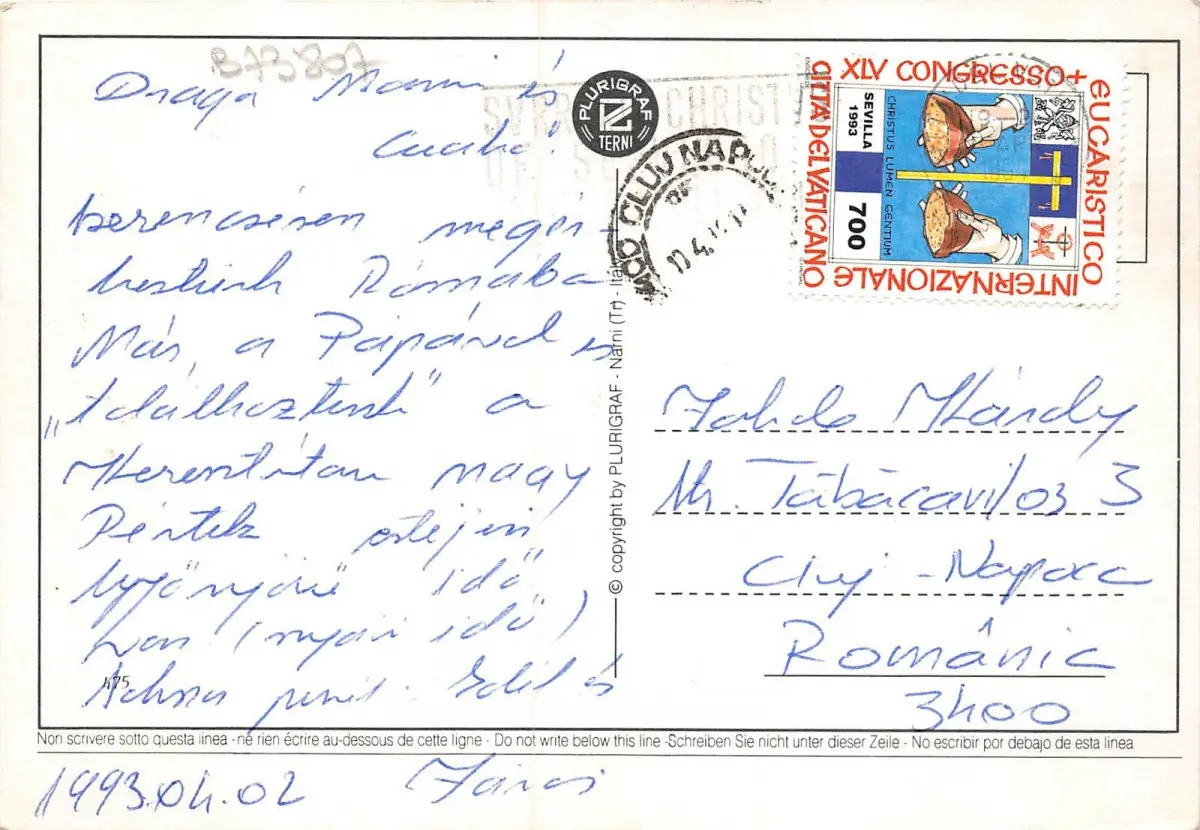 B73807
Draga Mami és
szerencsésen megér-
keztünk Rómába
Már, a Pápával is
„találkoztunk" a
Keresztútan nagy
Péntek estéjén
gyönyörü idő
van (nyári idő)
Edit és
Jánosi
1993.04.02
475
PLURIGRAF
TERNI
© copyright by PLURIGRAF - Narni (Tr) - Italia
CLUJ NAPOCA
XLV CONGRESSO +
EUCARISTICO
INTERNAZIONALE
CITTÀ DEL VATICANO
SEVILLA
1993
CHRISTUS LUMEN GENTIUM
700
Str. Tăbăcarilor 3
Cluj-Napoca
România
3400
Non scrivere sotto questa linea - ne rien écrire au-dessous de cette ligne - Do not write below this line - Schreiben Sie nicht unter dieser Zeile - No escribir por debajo de esta linea